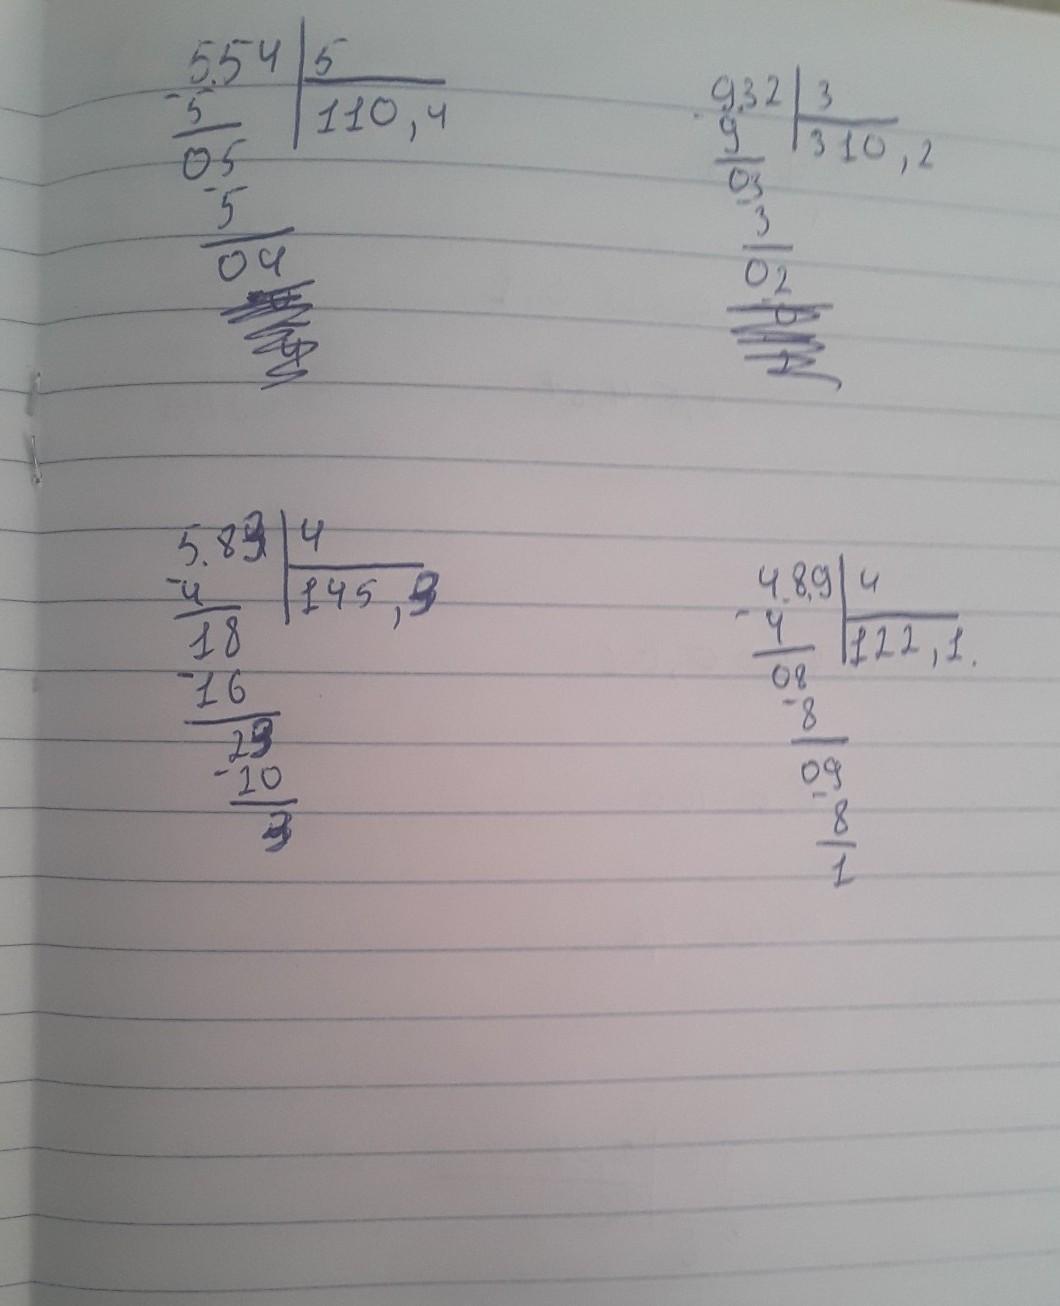 5.54 5
-5 110,4
05
-5
04
9.3.2 3
9 310,2
03
-3
02
5.83 4
-4 145,3
18
-16
23
-20
3
4.8.9 4
-4 122,1.
08
-8
09
-8
1